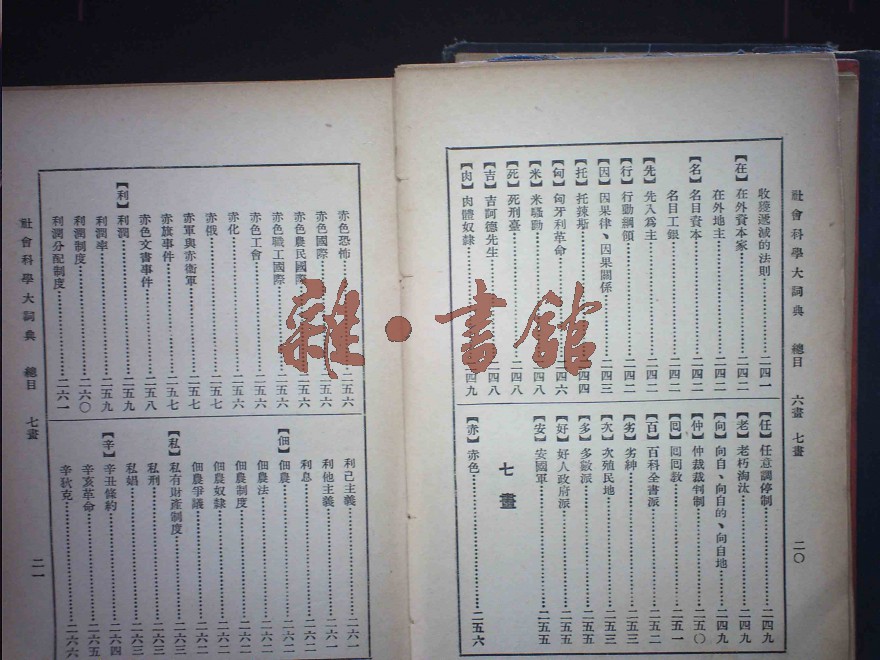 社會科學大詞典　總目　六畫　七畫　二〇
收穫遞減的法則……二四一
【在】在外資本家……二四二
在外地主……二四二
【名】名目資本……二四二
名目工銀……二四二
【先】先入為主……二四二
【行】行動綱領……二四二
【因】因果律、因果關係……二四三
【托】托辣斯……二四四
【匈】匈牙利革命……二四六
【米】米騷動……二四八
【死】死刑臺……二四八
【吉】吉訶德先生……二四八
【肉】肉體奴隸……二四九
【任】任意調停制……二四九
【老】老朽淘汰……二四九
【向】向自、向自的、向自地……二四九
【仲】仲裁裁判制……二五〇
【回】回回教……二五一
【百】百科全書派……二五二
【劣】劣紳……二五三
【次】次殖民地……二五三
【多】多數派……二五五
【好】好人政府派……二五五
【安】安國軍……二五五
七畫
【赤】赤色……二五六
赤色恐怖……二五六
赤色國際
赤色農民國際
赤色職工國際
赤色工會……二五六
赤化……二五六
赤俄……二五七
赤軍與赤衛軍……二五七
赤旗事件……二五七
赤色文書事件……二五八
【利】利潤……二五九
利潤率……二五九
利潤制度……二六〇
利潤分配制度……二六一
利己主義……二六一
利他主義……二六一
利息……二六二
【佃】佃農……二六二
佃農法……二六二
佃農制度……二六二
佃農奴隸……二六二
佃農爭議……二六二
【私】私有財產制度……二六三
私刑……二六三
私娼……二六三
【辛】辛丑條約……二六四
辛亥革命……二六五
辛狄克……二六六
社會科學大詞典　總目　七畫　二一
雜·書館